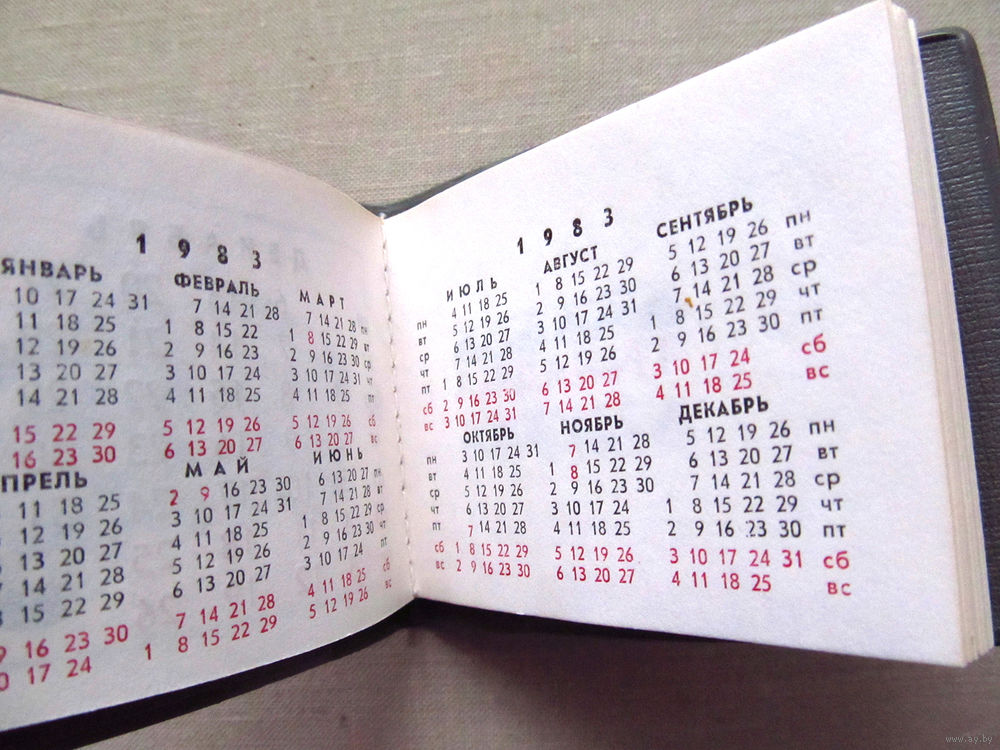 1983
ЯНВАРЬ
10 17 24 31
11 18 25
12 19 26
13 20 27
14 21 28
15 22 29
16 23 30
ФЕВРАЛЬ
7 14 21 28
1 8 15 22
2 9 16 23
3 10 17 24
4 11 18 25
5 12 19 26
6 13 20 27
МАРТ
7 14 21 28 пн
1 8 15 22 29 вт
2 9 16 23 30 ср
3 10 17 24 31 чт
4 11 18 25 пт
5 12 19 26 сб
6 13 20 27 вс
ПРЕЛЬ
11 18 25
12 19 26
13 20 27
14 21 28
15 22 29
16 23 30
17 24
МАЙ
2 9 16 23 30
3 10 17 24 31
4 11 18 25
5 12 19 26
6 13 20 27
7 14 21 28
1 8 15 22 29
ИЮНЬ
6 13 20 27 пн
7 14 21 28 вт
1 8 15 22 29 ср
2 9 16 23 30 чт
3 10 17 24 пт
4 11 18 25 сб
5 12 19 26 вс
1983
ИЮЛЬ
пн 4 11 18 25
вт 5 12 19 26
ср 6 13 20 27
чт 7 14 21 28
пт 1 8 15 22 29
сб 2 9 16 23 30
вс 3 10 17 24 31
АВГУСТ
1 8 15 22 29
2 9 16 23 30
3 10 17 24 31
4 11 18 25
5 12 19 26
6 13 20 27
7 14 21 28
СЕНТЯБРЬ
5 12 19 26 пн
6 13 20 27 вт
7 14 21 28 ср
1 8 15 22 29 чт
2 9 16 23 30 пт
3 10 17 24 сб
4 11 18 25 вс
ОКТЯБРЬ
пн 3 10 17 24 31
вт 4 11 18 25
ср 5 12 19 26
чт 6 13 20 27
пт 7 14 21 28
сб 1 8 15 22 29
вс 2 9 16 23 30
НОЯБРЬ
7 14 21 28
1 8 15 22 29
2 9 16 23 30
3 10 17 24
4 11 18 25
5 12 19 26
6 13 20 27
ДЕКАБРЬ
5 12 19 26 пн
6 13 20 27 вт
7 14 21 28 ср
1 8 15 22 29 чт
2 9 16 23 30 пт
3 10 17 24 31 сб
4 11 18 25 вс
www.ay.by